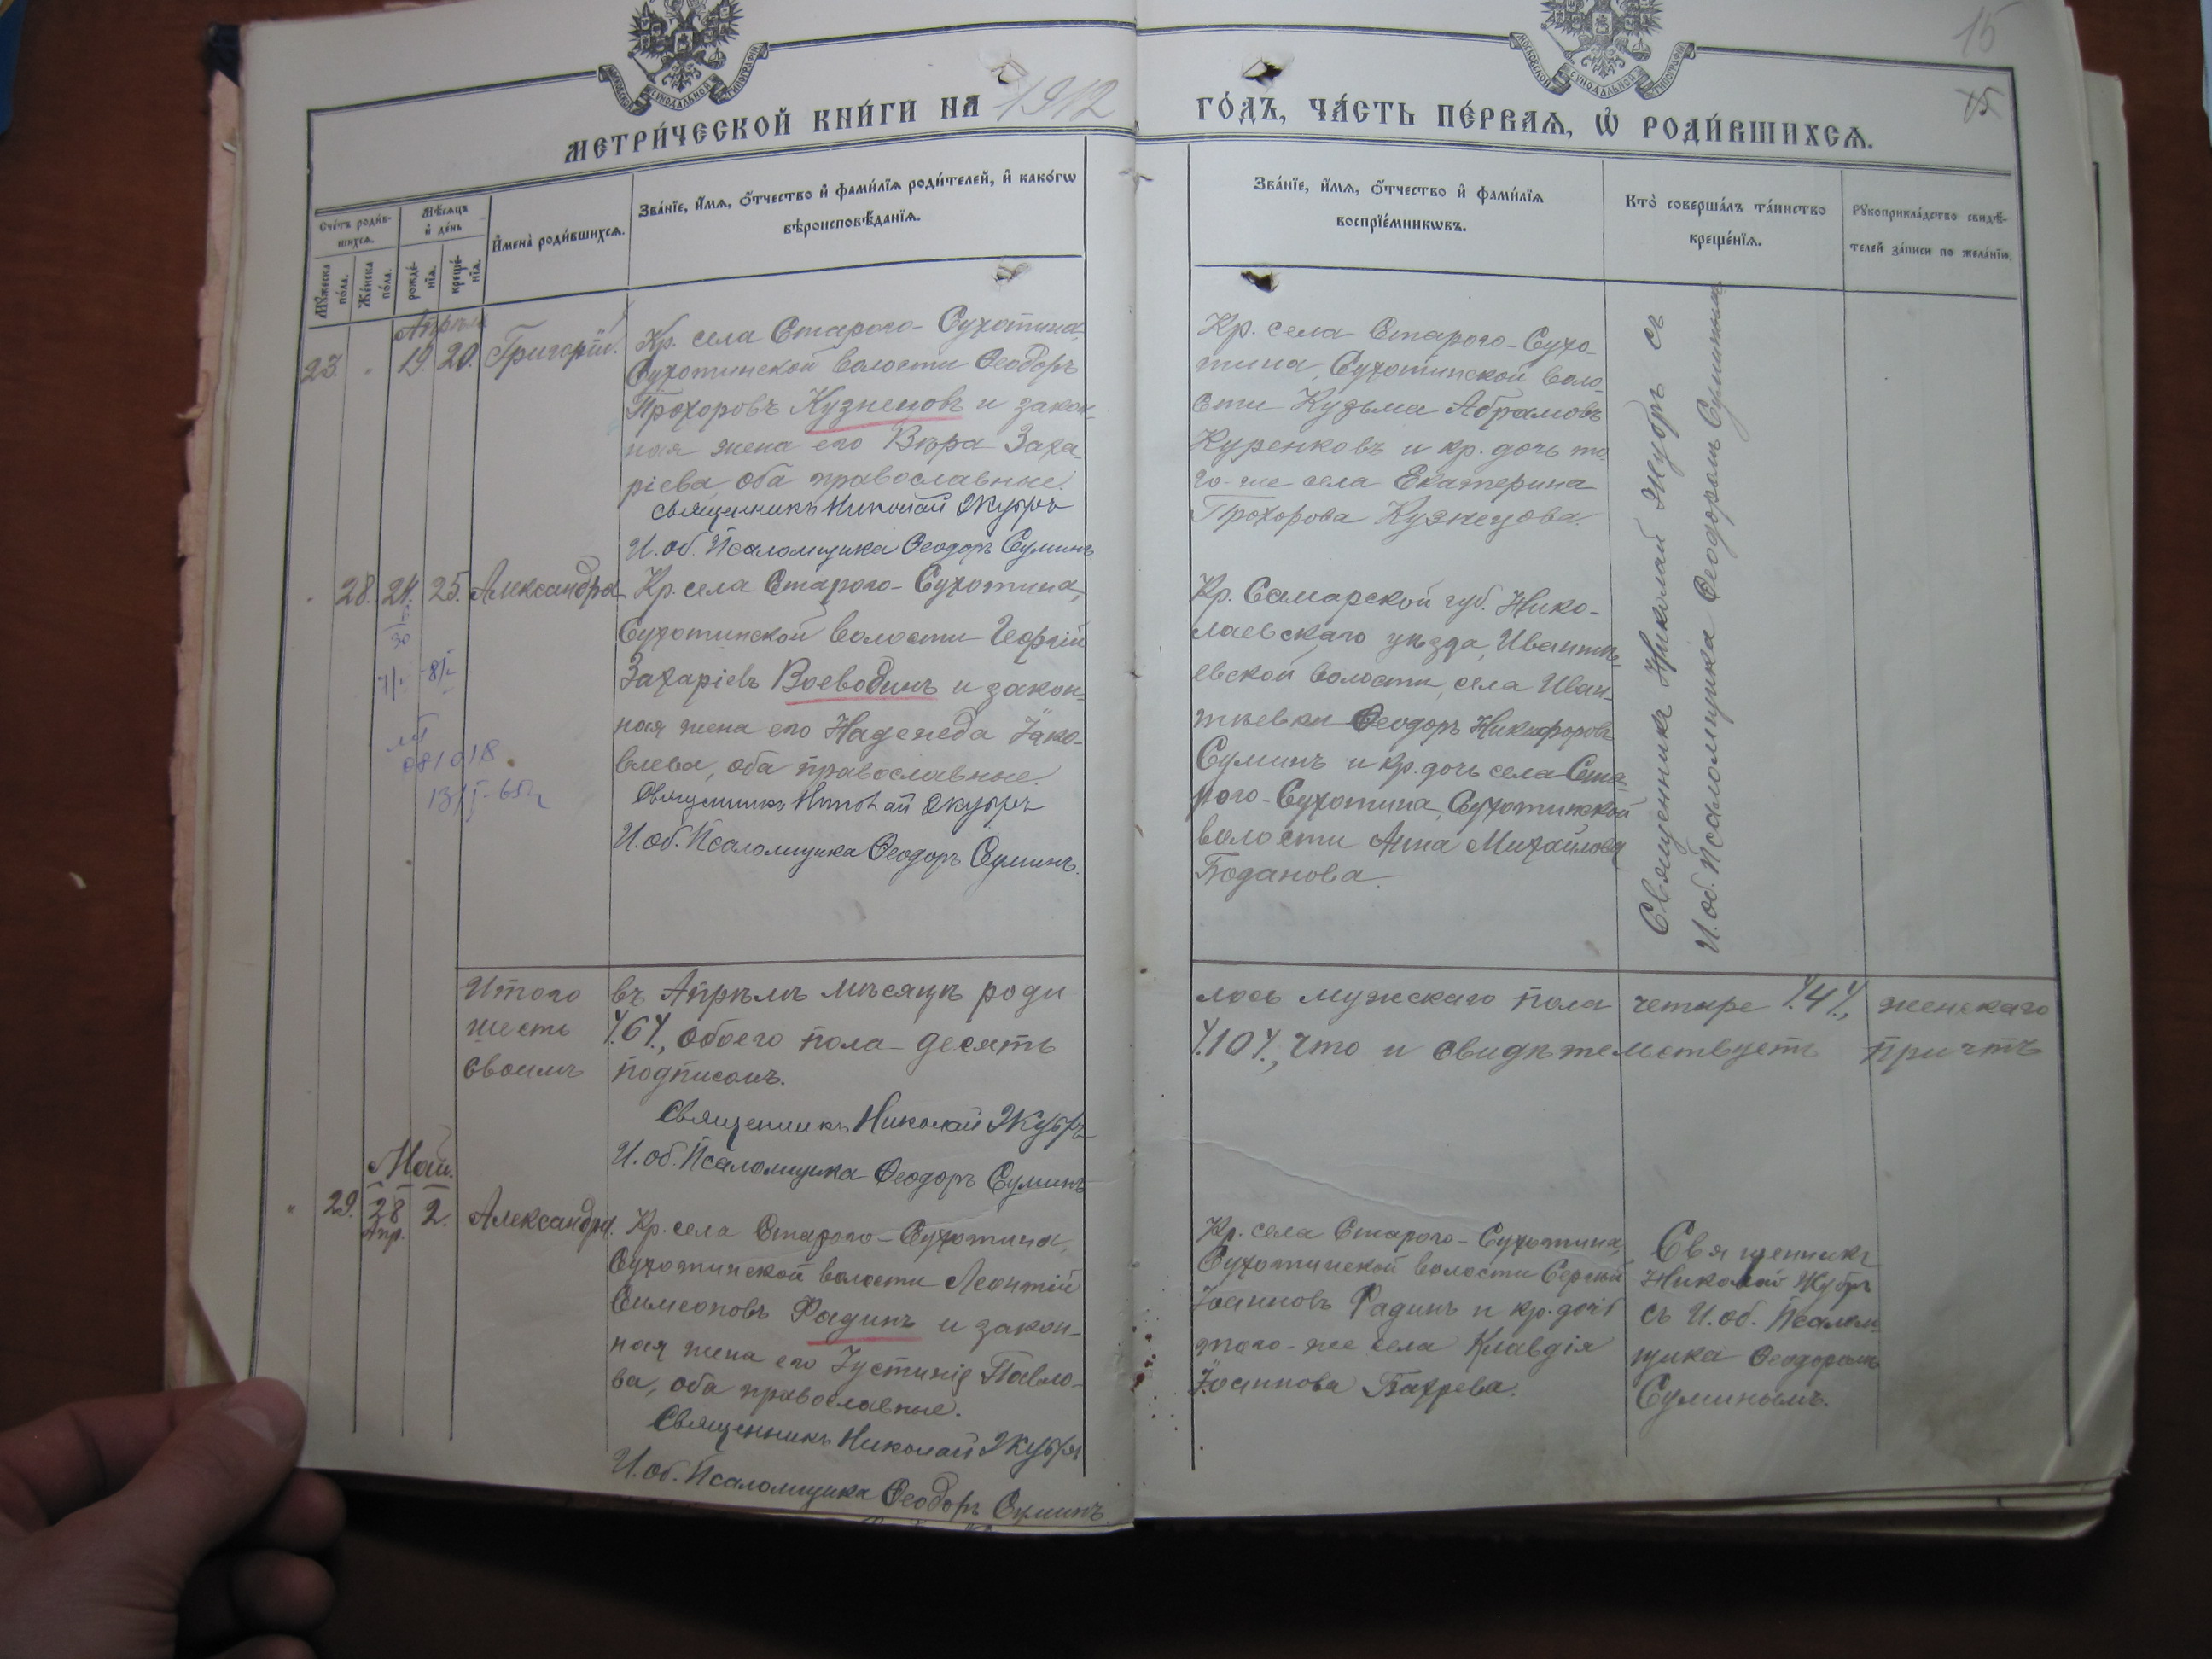 МОСКОВСКОЙ СУНОДАЛЬНОЙ ТИПОГРАФІИ
МОСКОВСКОЙ СУНОДАЛЬНОЙ ТИПОГРАФІИ
15
15
МЕТРИ́ЧЕСКОЙ КНИ́ГИ НА 1912
ГО́ДЪ, ЧА́СТЬ ПЕ́РВАѦ, Ѡ҆ РОДИ́ВШИХСѦ.
Сче́тъ роди́в-
шихсѧ.
Мꙋ́жеска по́ла.
Же́нска по́ла.
Мѣ́сѧцъ
и҆ де́нь
рожде́-
нїѧ.
креще́-
нїѧ.
И҆мена̀ роди́вшихсѧ.
Зва́нїе, и҆́мѧ, ѻ҆́тчество и҆ фами́лїѧ роди́телей, и҆ како́гѡ
вѣроисповѣ́данїѧ.
Зва́нїе, и҆́мѧ, ѻ҆́тчество и҆ фами́лїѧ
воспрїе́мникѡвъ.
Кто̀ соверша́лъ та́инство
креще́нїѧ.
Рꙋкоприкла́дство свидѣ́-
телей за́писи по жела́нїю.
Апрѣль
23. 19. 20. Григорій.
Кр. села Старого-Сухотина,
Сухотинской волости Ѳеодоръ
Прохоровъ Кузнецовъ и закон-
ная жена его Вѣра Заха-
ріева, оба православные.
Священникъ Николай Жубръ
И. об. Псаломщика Ѳеодоръ Суминъ
Кр. села Старого-Сухо-
тина, Сухотинской воло-
сти Кузьма Абрамовъ
Куренковъ и кр. дочь то-
го-же села Екатерина
Прохорова Кузнецова.
Священникъ Николай Жубръ съ
И. об. Псаломщика Ѳеодоромъ Суминымъ.
28. 24. 25. Александра
Кр. села Старого-Сухотина,
Сухотинской волости Георгій
Захаріевъ Воеводинъ и закон-
ная жена его Надежда Іако-
влева, оба православные.
Священникъ Николай Жубръ
И. об. Псаломщика Ѳеодоръ Суминъ.
30
081018
Кр. Самарской губ. Нико-
лаевскаго уѣзда, Ивантѣ-
евской волости, села Иван-
тѣевки Ѳеодоръ Никифоровъ
Суминъ и кр. дочь села Ста-
рого-Сухотина, Сухотинской
волости Анна Михайлова
Богданова.
Итого въ Апрѣлѣ мѣсяцѣ роди
лось мужскаго пола четыре ./.4./., женскаго
шесть ./.6./., обоего пола-десять
./.10./., что и свидѣтельствуетъ причтъ
своимъ подписомъ.
Священникъ Николай Жубръ
И. об. Псаломщика Ѳеодоръ Суминъ
Май.
29. 28 2. Александра.
Апр.
Кр. села Старого-Сухотина,
Сухотинской волости Леонтій
Симеоновъ Фадинъ и закон-
ная жена его Іустинія Павло-
ва, оба православные.
Священникъ Николай Жубръ
И. об. Псаломщика Ѳеодоръ Суминъ.
Кр. села Старого-Сухотина,
Сухотинской волости Сергѣй
Іоанновъ Фадинъ и кр. дочь
того-же села Клавдія
Іоаннова Бахрева.
Священникъ
Николай Жубръ
съ И. об. Псалом-
щика Ѳеодоромъ
Суминымъ.